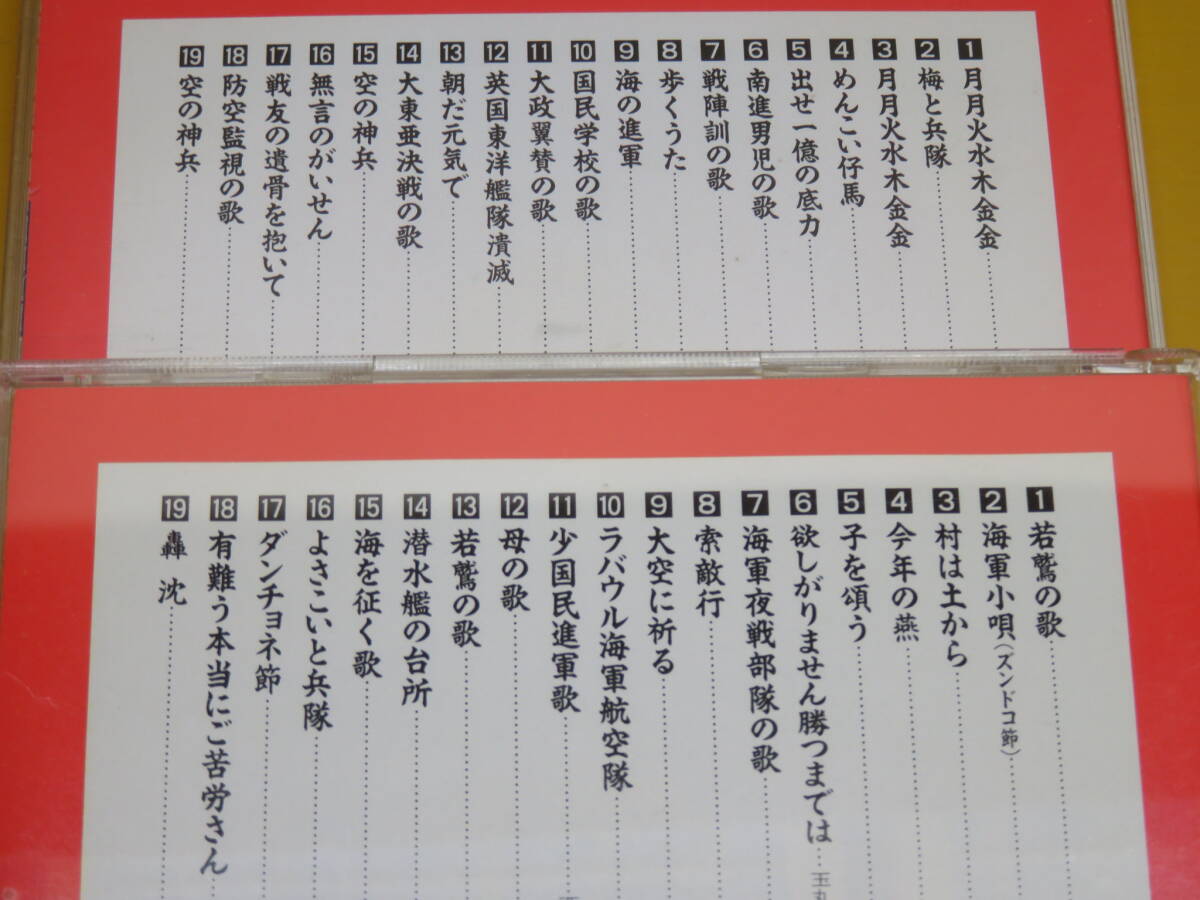 1 月月火水木金金
2 梅と兵隊
3 月月火水木金金
4 めんこい仔馬
5 出せ一億の底力
6 南進男児の歌
7 戦陣訓の歌
8 歩くうた
9 海の進軍
10 国民学校の歌
11 大政翼賛の歌
12 英国東洋艦隊潰滅
13 朝だ元気で
14 大東亜決戦の歌
15 空の神兵
16 無言のがいせん
17 戦友の遺骨を抱いて
18 防空監視の歌
19 空の神兵
1 若鷲の歌
2 海軍小唄(ズンドコ節)
3 村は土から
4 今年の燕
5 子を頌う
6 欲しがりません勝つまでは 玉丸
7 海軍夜戦部隊の歌
8 索敵行
9 大空に祈る
10 ラバウル海軍航空隊
11 少国民進軍歌
12 母の歌
13 若鷲の歌
14 潜水艦の台所
15 海を征く歌
16 よさこいと兵隊
17 ダンチョネ節
18 有難う本当にご苦労さん
19 轟沈